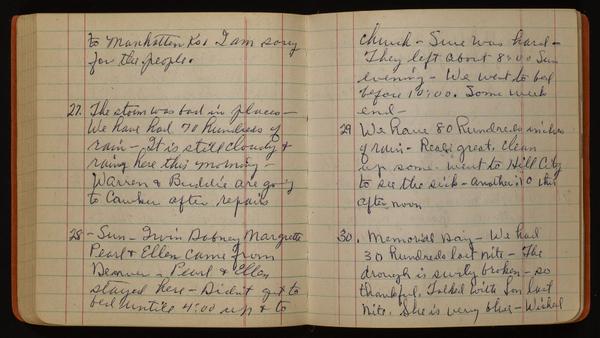 to Manhatten Ks. I am sorry
for the people.
27. The storm was bad in places -
We have had 70 Hundreds of
rain - It is still cloudy &
rainy here this morning -
Warren & Buddie are going
to Cawker after repairs
28 - Sun - Irvin Dabney Margrette
Pearl & Ellen came from
Denver - Pearl & Ellen
stayed here - Didn't get to
bed until 4:00 up & to
church - Sure was hard -
They left about 8:00 Sun
evening - We went to bed
before 10:00. Some week
end -
29 We have 80 Hundreds inches
of rain - Really great, clean
up some. Went to Hill City
to see the sick - another this
after noon
30. Memorial Day - We had
30 Hundreds last nite - The
drough is surly broken - so
thankful. Talked with last
nite. She is very blue - Wished